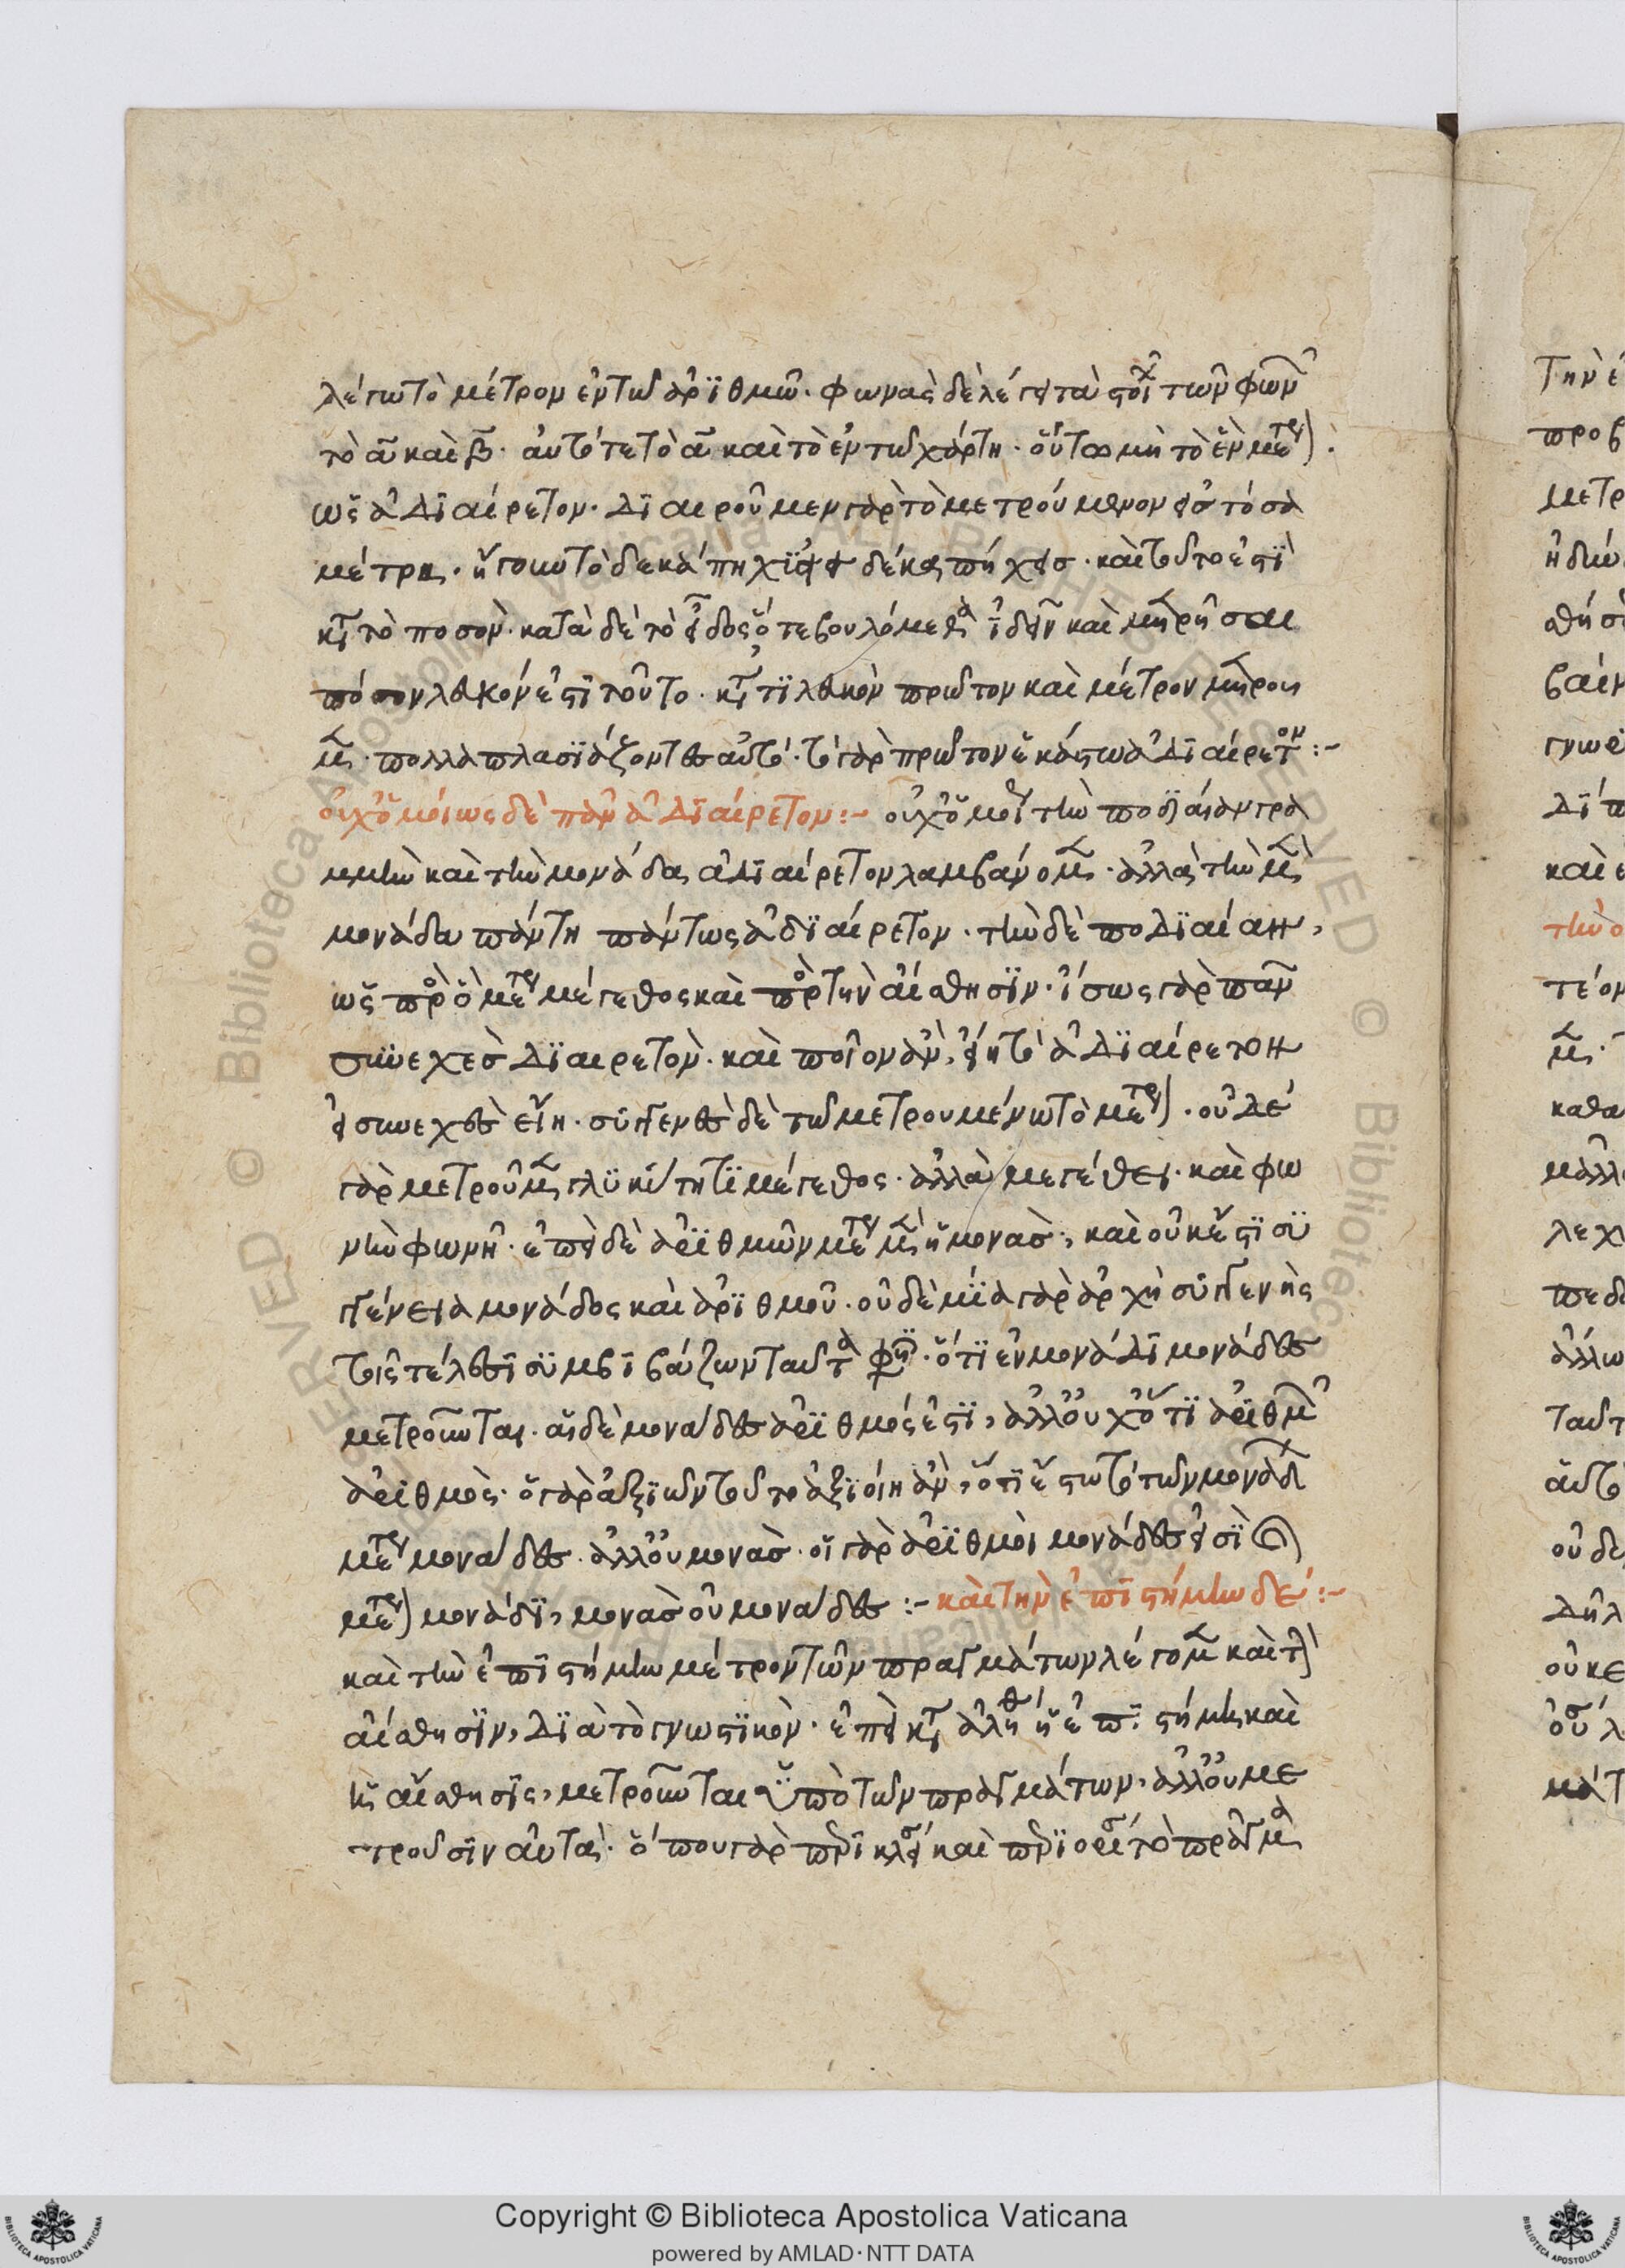 λέγω τὸ μέτρον ἐν τῶ ἀριθμῶ· φωνὰς δὲ λέγει τὰ στοιχ τῶν φων
τὸ α καὶ β· αὐτό τε τὸ α καὶ τὸ ἐν τῶ χάρτη· οὕτω μὴ τὸ ἓν μετρ
ὡς ἀδιαίρετον· διαιροῦμεν γὰρ τὸ μετρούμενον εἰς τόσα
μέτρα· ἤγουν τὸ δεκάπηχι εἰς δέκα πήχεις· καὶ τοῦτο ἐστὶ
κτ τὸ ποσὸν· κατὰ δὲ τὸ εἶδος ὅτε βουλόμεθα ἰδεῖν καὶ μετρῆσαι
πόσον λευκόν ἐστι τοῦτο· κτ τι λευκὸν πρῶτον καὶ μέτρον
πολλαπλασιάζοντες αὐτό· τὸ γὰρ πρῶτον ἑκάστω ἀδιαίρετον :-
οὐχ ὁμοίως δὲ πᾶν ἀδιαίρετον :- οὐχ ὁμοι τὴν ποδιαίαν γρα
μμὴν καὶ τὴν μονάδα ἀδιαίρετον λαμβάνομ· ἀλλὰ τὴν μὲν
μονάδα πάντη πάντως ἀδιαίρετον· τὴν δὲ ποδιαίαν,
ὡς πρὸς ὃ μετρ μέγεθος καὶ πρὸς τὴν αἴσθησιν· ἴσως γὰρ πᾶν
συνεχὲς διαιρετὸν· καὶ ποῖον ἂν, εἴη τὸ ἀδιαίρετον
εἰ συνεχὲς εἴη· συγγενὲς δὲ τῶ μετρουμένω τὸ μετρ· οὐδὲ
γὰρ μετροῦμ γλυκύτητι μέγεθος· ἀλλὰ μεγέθει· καὶ φω
νὴν φωνῆ· ἐπεὶ δὲ ἀριθμῶν μετρ μὲν ἡ μονὰς, καὶ οὐκ ἔστι συ
γγένεια μονάδος καὶ ἀριθμοῦ· οὐδεμία γὰρ ἀρχὴ συγγενὴς
τοῖς τέλεσι συμβιβάζων ταῦτα φησὶν· ὅτι ἐν μονάδι μονάδες
μετροῦνται· αἱ δὲ μονάδες ἀριθμός ἐστι, ἀλλ' οὐχ ὅτι ἀριθμ
ἀριθμὸς· ὁ γὰρ ἀξιῶν τοῦτο ἀξιοίη ἂν, ὅτι ἔστω τὸ τῶν μονάδ
μετρ μονάδες· ἀλλ' οὐ μονὰς· οἱ γὰρ ἀριθμοὶ μονάδες εἰσὶ
μετρ μονάδι, μονὰς οὐ μονάδες :- καὶ τὴν ἐπιστήμην δέ :-
καὶ τὴν ἐπιστήμην μέτρον τῶν πραγμάτων λέγομ καὶ τὴν
αἴσθησιν, διὰ τὸ γνωστικὸν· ἐπεὶ κτ ἀλήθ ἡ ἐπιστήμη καὶ
ἡ αἴσθησις, μετροῦνται ὑπὸ τῶν πραγμάτων, ἀλλ' οὐ με
τροῦσιν αὐτὰ· ὅπου γὰρ τὸ πρᾶγμα